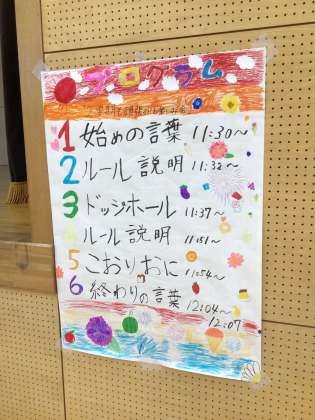 プログラム
1 始めの言葉 11:30〜
2 ルール説明 11:32〜
3 ドッジホール 11:37〜
4 ルール説明 11:51〜
5 こおりおに 11:54〜
6 終わりの言葉 12:04〜
12:07